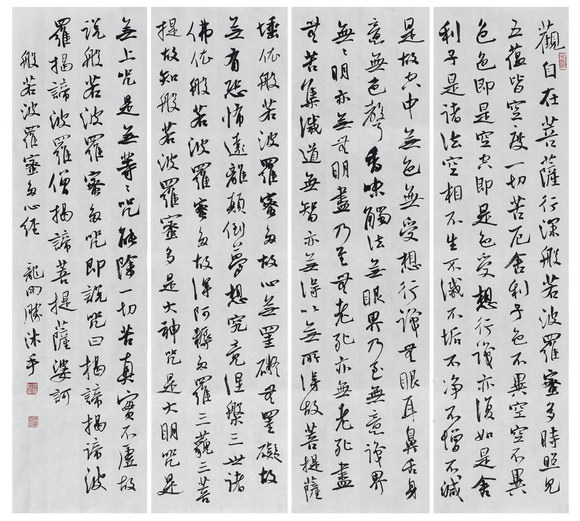 觀自在菩薩行深般若波羅蜜多時照見
五蘊皆空度一切苦厄舍利子色不異空空不異
色色即是空空即是色受想行識亦復如是舍
利子是諸法空相不生不滅不垢不净不增不減
是故空中無色無受想行識無眼耳鼻舌身
意無色聲香味觸法無眼界乃至無意識界
無無明亦無無明盡乃至無老死亦無老死盡
無苦集滅道無智亦無得以無所得故菩提薩
埵依般若波羅蜜多故心無罣礙無罣礙故
無有恐怖遠離顛倒夢想究竟涅槃三世諸
佛依般若波羅蜜多故得阿耨多羅三藐三菩
提故知般若波羅蜜多是大神咒是大明咒是
無上咒是無等等咒能除一切苦真實不虛故
説般若波羅蜜多咒即説咒曰揭諦揭諦波
羅揭諦波羅僧揭諦菩提薩婆訶
般若波羅蜜多心經